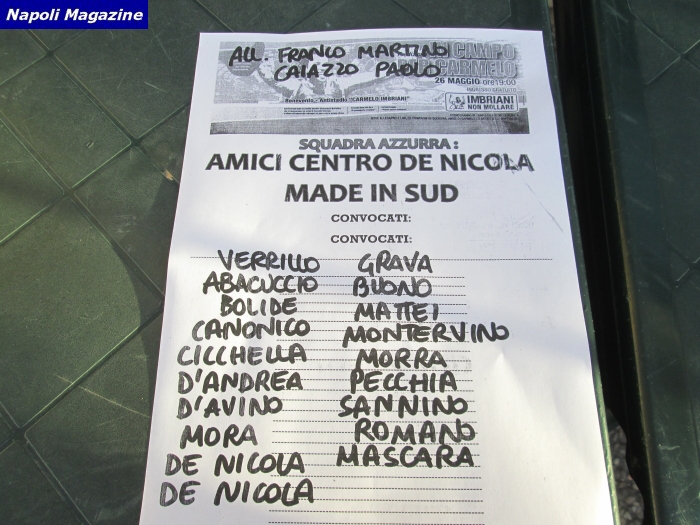 Napoli Magazine
ALL. FRANCO MARTINO
CAIAZZO PAOLO
CAMPO
CARMELO
26 MAGGIO ore 19:00
Benevento, Antistadio "CARMELO IMBRIANI"
IMBRIANI
NON MOLLARE
SQUADRA AZZURRA:
AMICI CENTRO DE NICOLA
MADE IN SUD
CONVOCATI:
CONVOCATI:
VERRILLO GRAVA
ABACUCCIO BUONO
BOLIDE MATTEI
CANONICO MONTERVINO
CICCHELLA MORRA
D'ANDREA PECCHIA
D'AVINO SANNINO
MORA ROMANO
DE NICOLA MASCARA
DE NICOLA